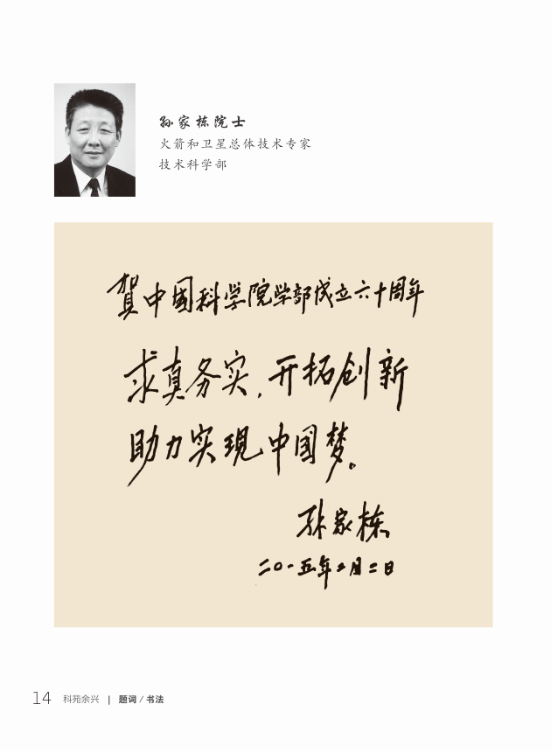 孙家栋院士
火箭和卫星总体技术专家
技术科学部
贺中国科学院学部成立六十周年
求真务实，开拓创新
助力实现中国梦。
孙家栋
二〇一五年二月二日
14 科苑余兴 | 题词 / 书法